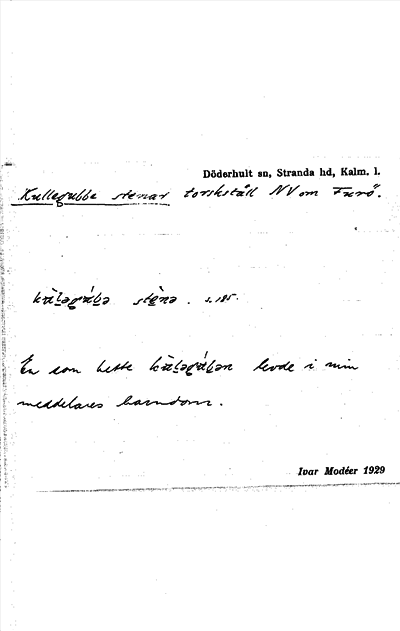 Döderhult sn, Stranda hd, Kalm. l.
Kullegubbe stenar torskställ NV om Furö.
s. 185.
En som hette levde i min
meddelares barndom.
Ivar Modéer 1929